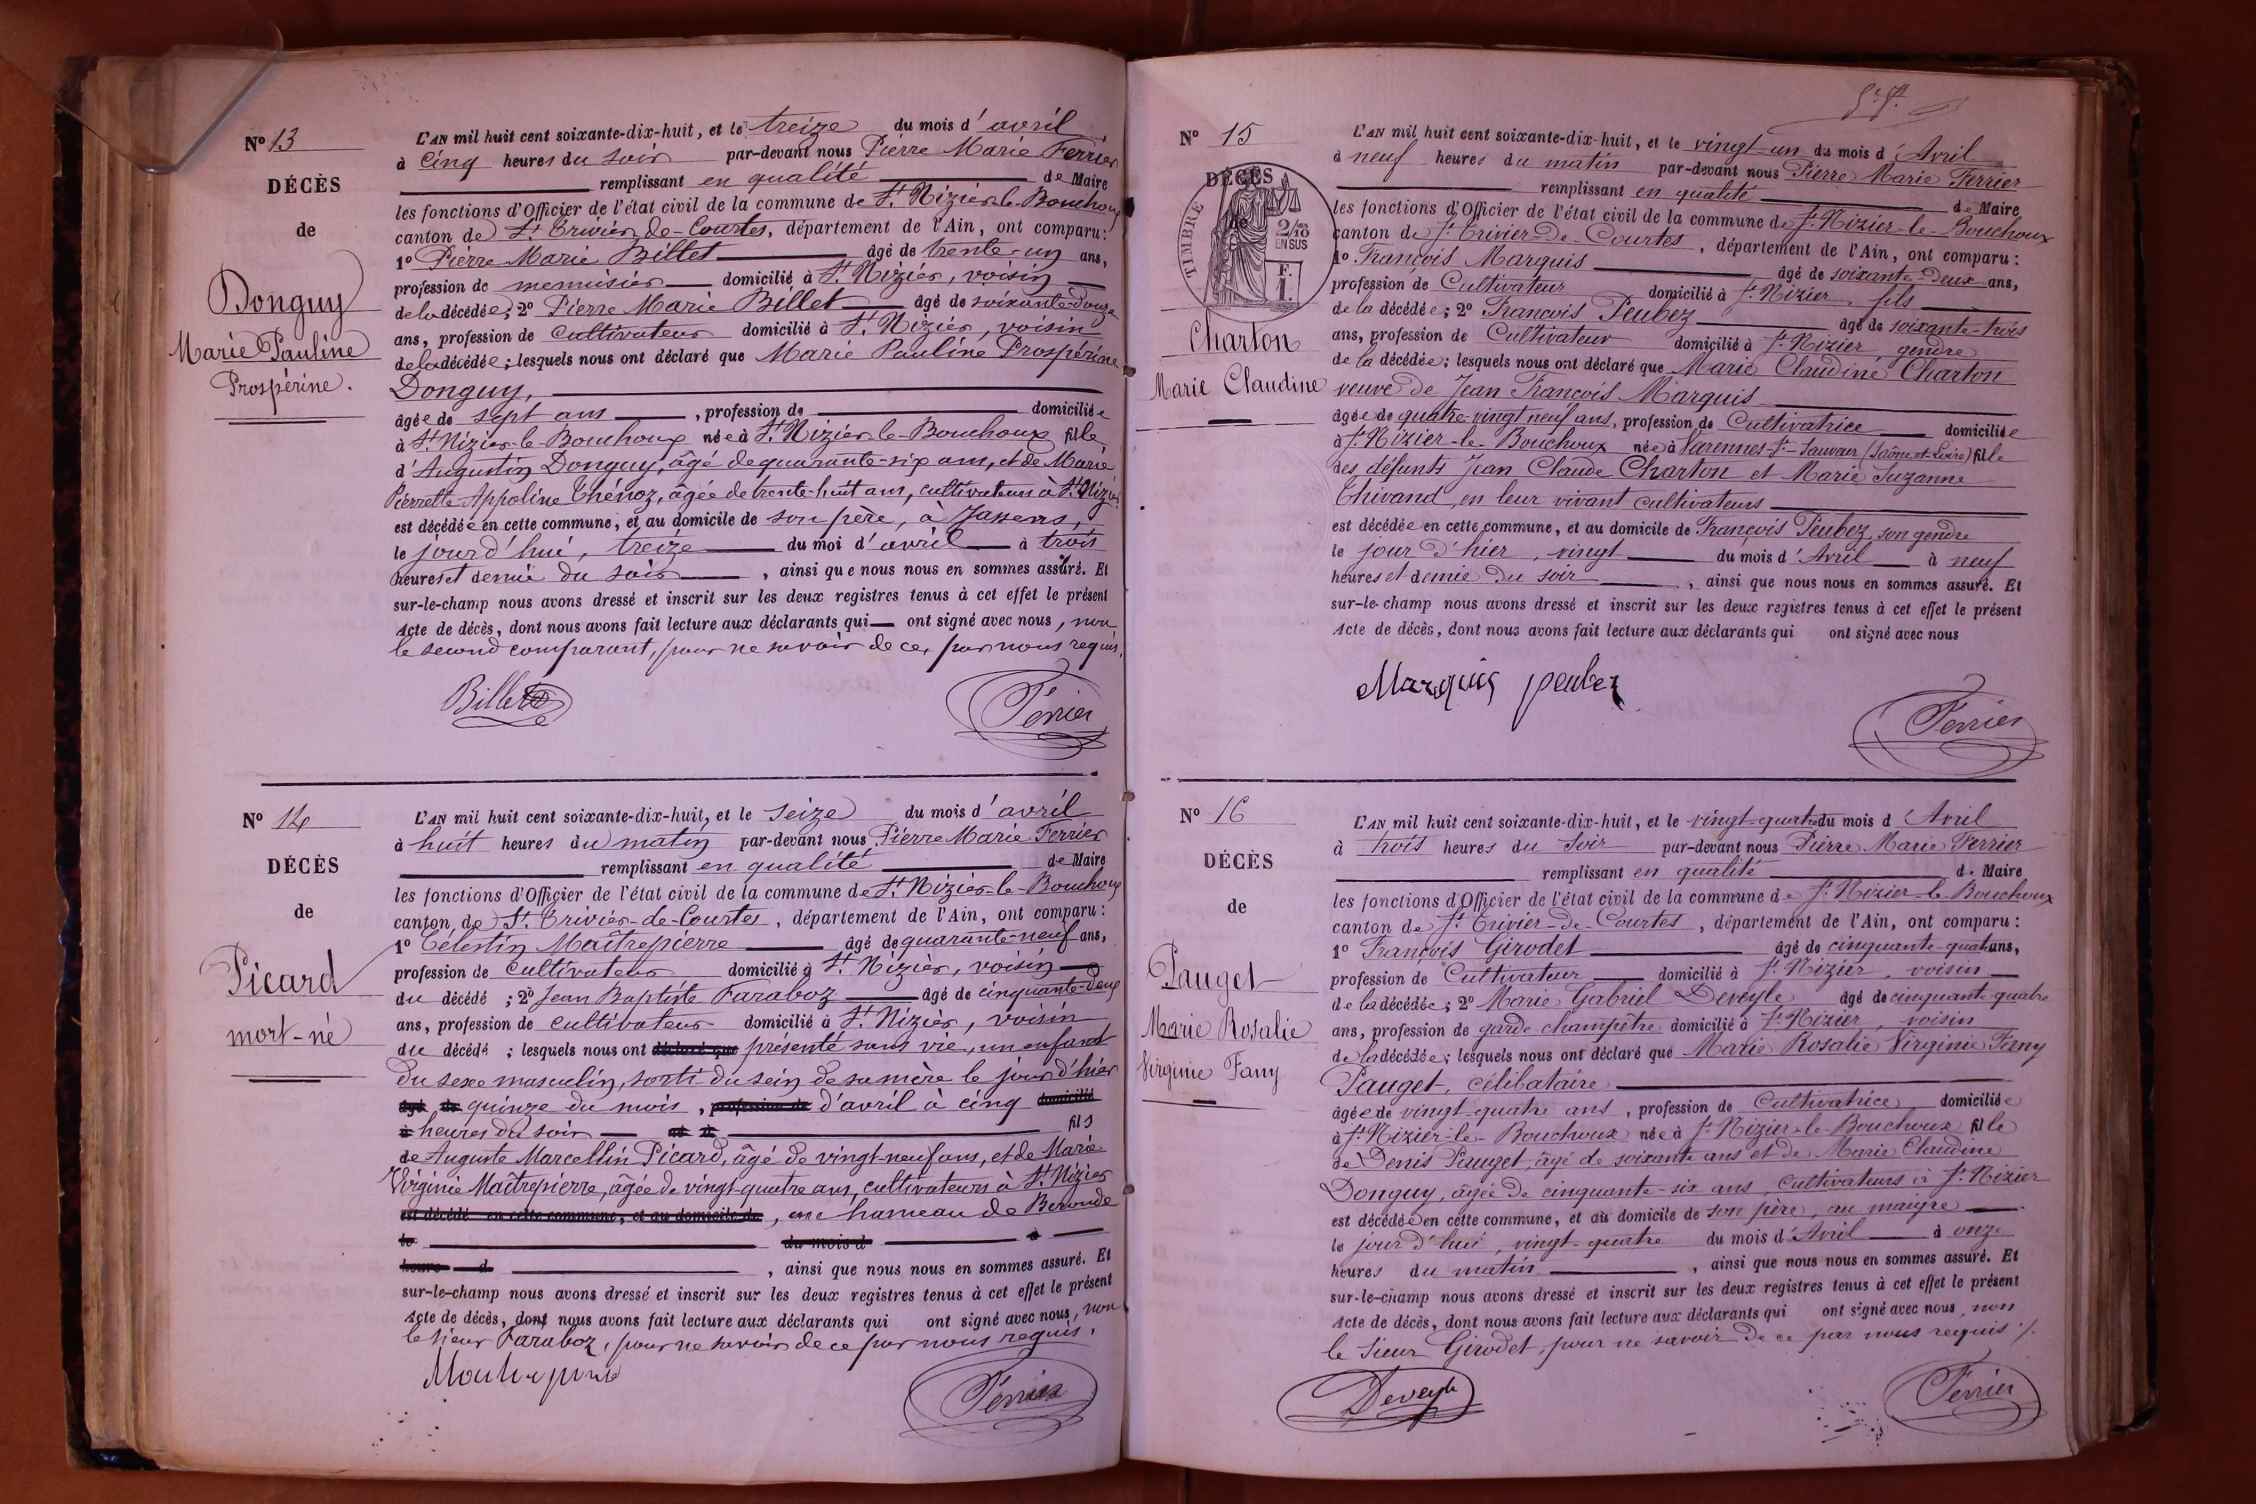 Nº 13
DÉCÈS
de
Donguy
Marie Pauline
Prospérine.
L'AN mil huit cent soixante-dix-huit, et le treize du mois d'avril
à cinq heures du soir par-devant nous Pierre Marie Ferrier
remplissant en qualité de Maire
les fonctions d'Officier de l'état civil de la commune de St. Nizier-le-Bouchoux
canton de St. Trivier-de-Courtes, département de l'Ain, ont comparu:
1º Pierre Marie Billet âgé de trente-un ans,
profession de menuisier domicilié à St. Nizier, voisin
de la décédée; 2º Pierre Marie Billet âgé de soixante-douze
ans, profession de cultivateur domicilié à St. Nizier, voisin
de la décédée; lesquels nous ont déclaré que Marie Pauline Prospérine
Donguy,
âgée de sept ans, profession de domiciliée
à St. Nizier-le-Bouchoux née à St. Nizier-le-Bouchoux fille
d'Augustin Donguy, âgé de quarante-six ans, et de Marie
Pierrette Appoline Thénoz, âgée de trente-huit ans, cultivateurs à St. Nizier
est décédée en cette commune, et au domicile de son père, à
le jour d'hui, treize du moi d'avril à trois
heures et demie du soir, ainsi que nous nous en sommes assuré. Et
sur-le-champ nous avons dressé et inscrit sur les deux registres tenus à cet effet le présent
Acte de décès, dont nous avons fait lecture aux déclarants qui ont signé avec nous, non
le second comparant, pour ne savoir de ce, par nous requis.
Billet Ferrier
Nº 14
DÉCÈS
de
Picard
mort-né
L'AN mil huit cent soixante-dix-huit, et le seize du mois d'avril
à huit heures du matin par-devant nous Pierre Marie Ferrier
remplissant en qualité de Maire
les fonctions d'Officier de l'état civil de la commune de St. Nizier-le-Bouchoux
canton de St. Trivier-de-Courtes, département de l'Ain, ont comparu:
1º Célestin Maîtrepierre âgé de quarante-neuf ans,
profession de cultivateur domicilié à St. Nizier, voisin
du décédé; 2º Jean Baptiste Faraboz âgé de cinquante-deux
ans, profession de cultivateur domicilié à St. Nizier, voisin
du décédé; lesquels nous ont déclaré que présenté sans vie, un enfant
du sexe masculin, sorti du sein de sa mère le jour d'hier
âgé de quinze du mois, profession de d'avril à cinq domicilié
à heures du soir né à fils
de Auguste Marcellin Picard, âgé de vingt-neuf ans, et de Marie
Virginie Maîtrepierre, âgée de vingt-quatre ans, cultivateurs à St. Nizier
est décédé en cette commune, et au domicile de, hameau de
le du mois d à
heure d, ainsi que nous nous en sommes assuré. Et
sur-le-champ nous avons dressé et inscrit sur les deux registres tenus à cet effet le présent
Acte de décès, dont nous avons fait lecture aux déclarants qui ont signé avec nous, non
le sieur Faraboz, pour ne savoir de ce par nous requis.
Ferrier
Nº 15
DÉCÈS
TIMBRE
2/10
EN SUS
F.
1.
Charton
Marie Claudine
L'AN mil huit cent soixante-dix-huit, et le vingt-un du mois d'Avril
à neuf heures du matin par-devant nous Pierre Marie Ferrier
remplissant en qualité de Maire
les fonctions d'Officier de l'état civil de la commune de St. Nizier-le-Bouchoux
canton de St. Trivier-de-Courtes, département de l'Ain, ont comparu:
1º François Marquis âgé de soixante-deux ans,
profession de Cultivateur domicilié à St. Nizier, fils
de la décédée; 2º François Peubez âgé de soixante-trois
ans, profession de Cultivateur domicilié à St. Nizier gendre
de la décédée; lesquels nous ont déclaré que Marie Claudine Charton
veuve de Jean François Marquis
âgée de quatre-vingt neuf ans, profession de Cultivatrice domiciliée
à St. Nizier-le-Bouchoux née à Varennes-St-Sauveur (Saône-et-Loire) fille
des défunts Jean Claude Charton et Marie Suzanne
Thivand, en leur vivant cultivateurs
est décédée en cette commune, et au domicile de François Peubez, son gendre
le jour d'hier, vingt du mois d'Avril à neuf
heures et demie du soir, ainsi que nous nous en sommes assuré. Et
sur-le-champ nous avons dressé et inscrit sur les deux registres tenus à cet effet le présent
Acte de décès, dont nous avons fait lecture aux déclarants qui ont signé avec nous
Marquis peubez
Ferrier
Nº 16
DÉCÈS
de
Pauget
Marie Rosalie
Virginie Fany
L'AN mil huit cent soixante-dix-huit, et le vingt-quatre du mois d Avril
à trois heures du soir par-devant nous Pierre Marie Ferrier
remplissant en qualité de Maire
les fonctions d'Officier de l'état civil de la commune de St. Nizier-le-Bouchoux
canton de St. Trivier-de-Courtes, département de l'Ain, ont comparu:
1º François Girodet âgé de cinquante-quatre ans,
profession de Cultivateur domicilié à St. Nizier, voisin
de la décédée; 2º Marie Gabriel Deveyle âgé de cinquante-quatre
ans, profession de garde champêtre domicilié à St. Nizier, voisin
de la décédée; lesquels nous ont déclaré que Marie Rosalie Virginie Fany
Pauget, célibataire
âgée de vingt-quatre ans, profession de Cultivatrice domiciliée
à St. Nizier-le-Bouchoux née à St. Nizier-le-Bouchoux fille
de Denis Pauget, âgé de soixante ans et de Marie Claudine
Donguy, âgée de cinquante-six ans, Cultivateurs à St. Nizier
est décédée en cette commune, et au domicile de son père, au maigre
le jour d'hui, vingt-quatre du mois d'Avril à onze
heures du matin, ainsi que nous nous en sommes assuré. Et
sur-le-champ nous avons dressé et inscrit sur les deux registres tenus à cet effet le présent
Acte de décès, dont nous avons fait lecture aux déclarants qui ont signé avec nous, non
le Sieur Girodet, pour ne savoir de ce par nous requis ./.
Deveyle Ferrier